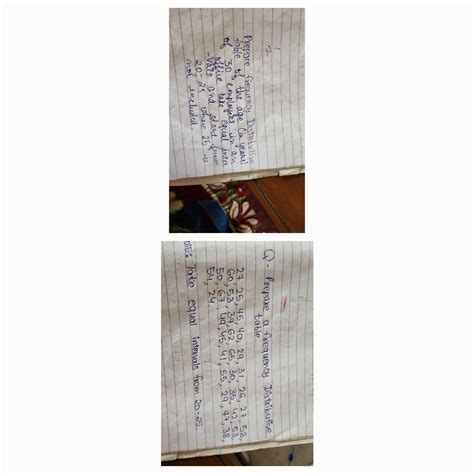 1
Prepare frequency Distributive
table of the age (in years)
of 30 employees in an
office take equal inter
-vals and start from
20-25 where 25 is
not included.
Q- Prepare a frequency Distributive
table
27, 25, 45, 40, 29, 31, 26, 27, 58,
60, 53, 39, 62, 65, 30, 35, 42, 53,
50, 67, 49, 45, 41, 55, 29, 47, 38,
54, 24.
Take equal intervals from 20-25.